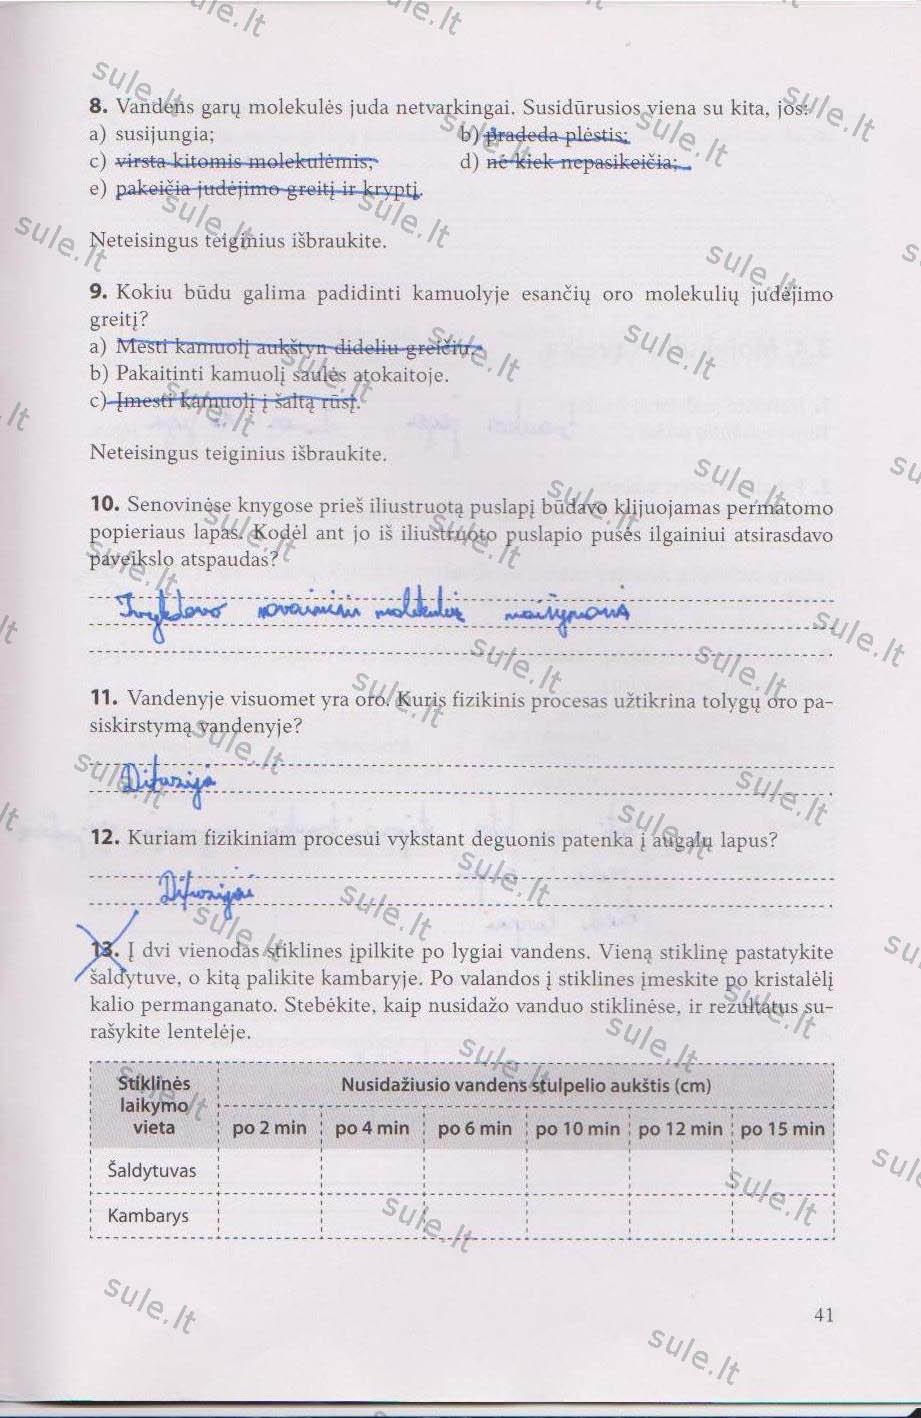 8. Vandens garų molekulės juda netvarkingai. Susidūrusios viena su kita, jos:
a) susijungia; b) pradeda plėstis;
c) virsta kitomis molekulėmis; d) nė kiek nepasikeičia;
e) pakeičia judėjimo greitį ir kryptį.
Neteisingus teiginius išbraukite.
9. Kokiu būdu galima padidinti kamuolyje esančių oro molekulių judėjimo
greitį?
a) Mesti kamuolį aukštyn dideliu greičiu.
b) Pakaitinti kamuolį saulės atokaitoje.
c) Įmesti kamuolį į šaltą rūsį.
Neteisingus teiginius išbraukite.
10. Senovinėse knygose prieš iliustruotą puslapį būdavo klijuojamas permatomo
popieriaus lapas. Kodėl ant jo iš iliustruoto puslapio pusės ilgainiui atsirasdavo
paveikslo atspaudas?
molekulių maišymasis
11. Vandenyje visuomet yra oro. Kuris fizikinis procesas užtikrina tolygų oro pa-
siskirstymą vandenyje?
Difuzija
12. Kuriam fizikiniam procesui vykstant deguonis patenka į augalų lapus?
Difuzijai
13. Į dvi vienodas stiklines įpilkite po lygiai vandens. Vieną stiklinę pastatykite
šaldytuve, o kitą palikite kambaryje. Po valandos į stiklines įmeskite po kristalėlį
kalio permanganato. Stebėkite, kaip nusidažo vanduo stiklinėse, ir rezultatus su-
rašykite lentelėje.
Stiklinės laikymo vieta Nusidažiusio vandens stulpelio aukštis (cm)
po 2 min po 4 min po 6 min po 10 min po 12 min po 15 min
Šaldytuvas
Kambarys
41
sule.lt